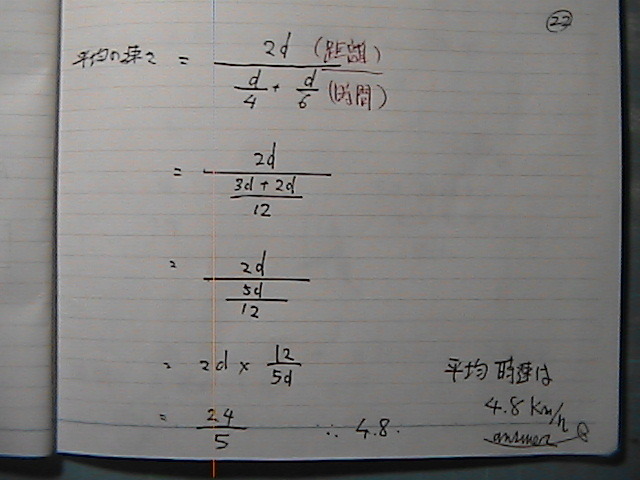 22
平均の速さ = 2d (距離) / d/4 + d/6 (時間)
= 2d / (3d + 2d)/12
= 2d / 5d/12
= 2d × 12/5d
= 24/5 ∴ 4.8.
平均時速は
4.8 km/h
answer